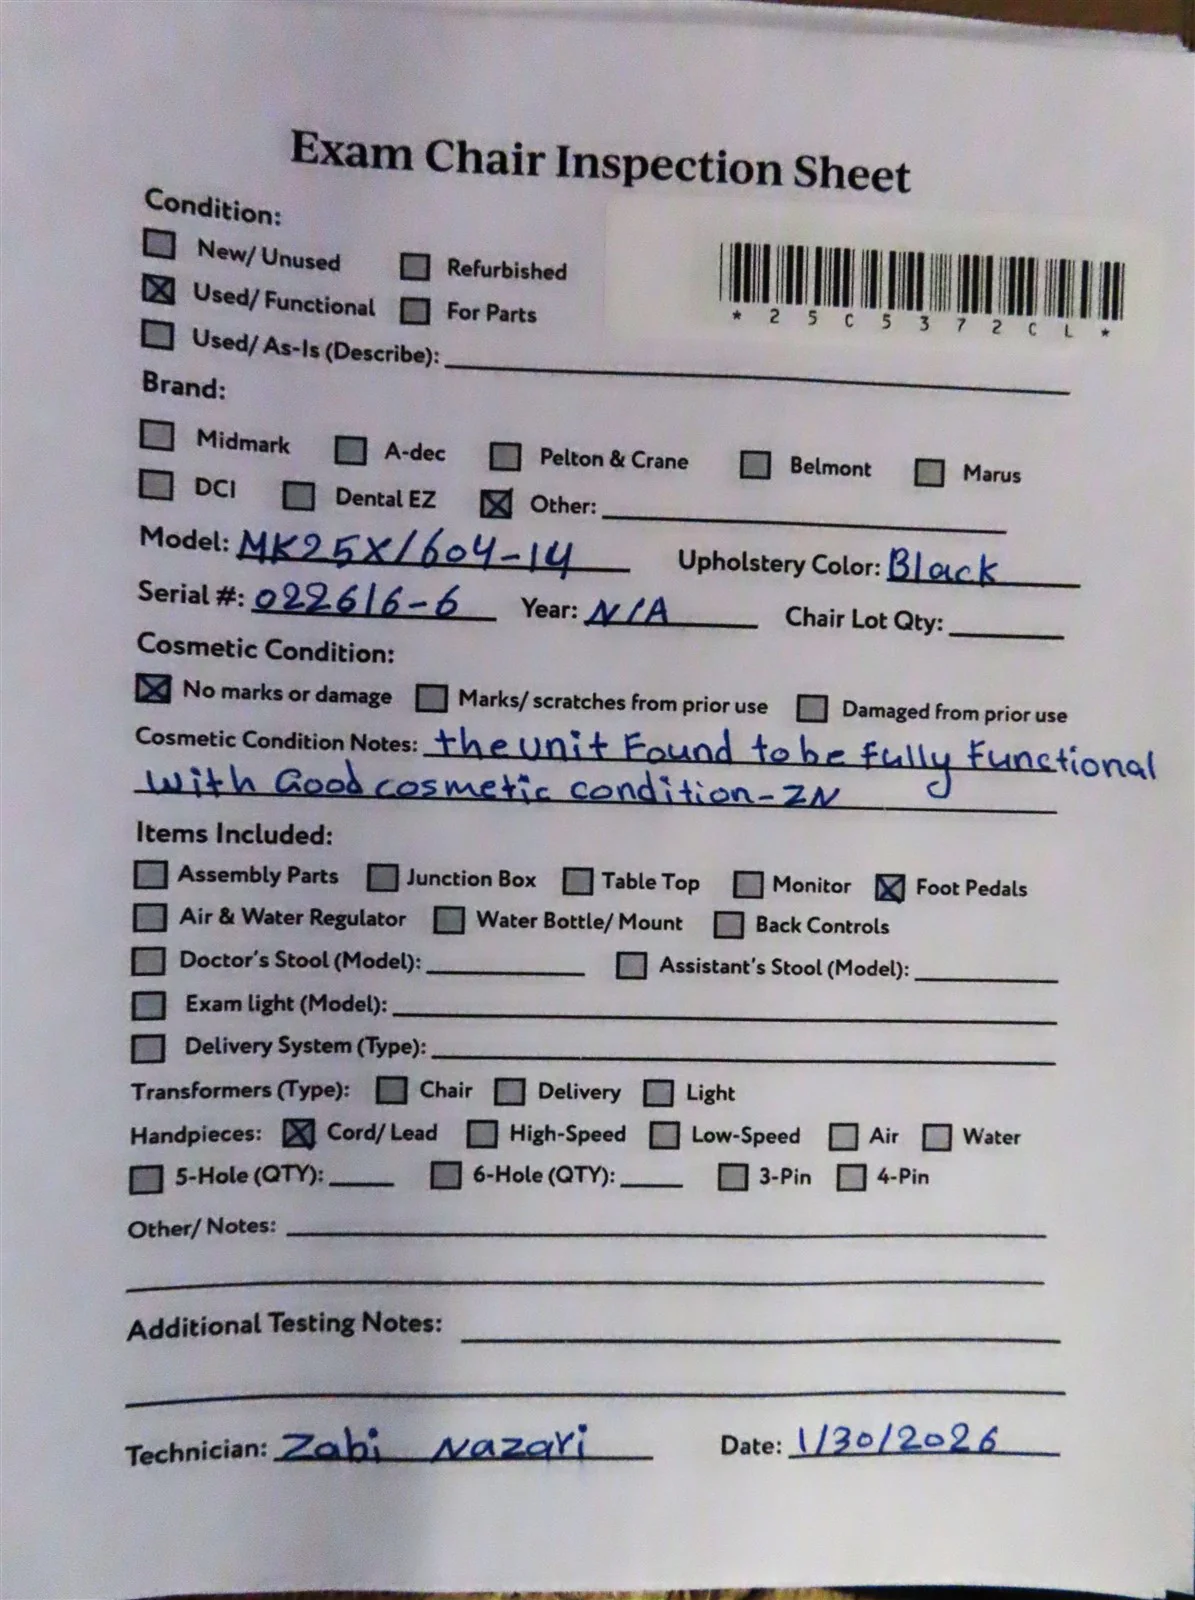 Exam Chair Inspection Sheet
Condition:
New/ Unused Refurbished
Used/ Functional For Parts
Used/ As-Is (Describe):
*25C5372CL*
Brand:
Midmark A-dec Pelton & Crane Belmont Marus
DCI Dental EZ Other:
Model: MK25X/604-14 Upholstery Color: Black
Serial #: 022616-6 Year: N/A Chair Lot Qty:
Cosmetic Condition:
No marks or damage Marks/ scratches from prior use Damaged from prior use
Cosmetic Condition Notes: the unit Found to be fully Functional
with Good cosmetic condition-ZN
Items Included:
Assembly Parts Junction Box Table Top Monitor Foot Pedals
Air & Water Regulator Water Bottle/ Mount Back Controls
Doctor's Stool (Model): Assistant's Stool (Model):
Exam light (Model):
Delivery System (Type):
Transformers (Type): Chair Delivery Light
Handpieces: Cord/ Lead High-Speed Low-Speed Air Water
5-Hole (QTY): 6-Hole (QTY): 3-Pin 4-Pin
Other/ Notes:
Additional Testing Notes:
Technician: Zabi Nazari Date: 1/30/2026